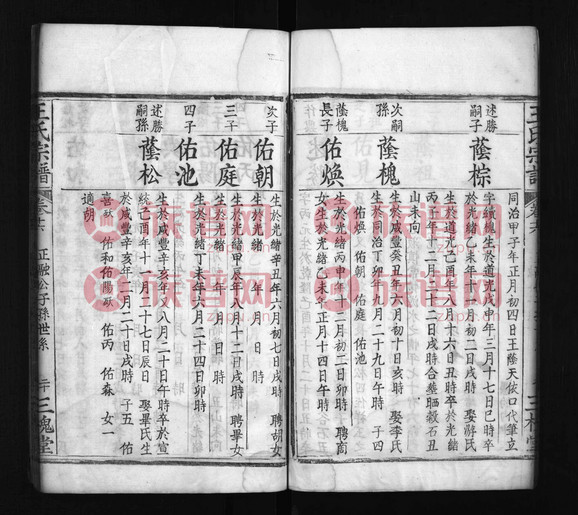 王氏宗譜
同治甲子年正月初四日王蔭天依口代筆立
述勝嗣子
蔭棕
字續緫生於道光戊申年三月十七日巳時卒
於光緒乙未年十一月初二日戌時 娶
氏生於道光己酉年八月十六日丑時卒於光緒
丙午年十二月二十二日戌時合葬 石丑
山未向
次嗣孫
蔭槐
生於咸豐癸丑年六月初十日亥時 娶李氏
生於同治丁卯年九月二十九日午時 子四
佑煥 佑朝 佑庭 佑池
蔭槐長子
佑煥
生於光緒丙申年十二月初二日卯時 聘
女生於光緒乙亥年正月十四日午時
次子
佑朝
生於光緒辛丑年六月初七日戌時 聘胡女
生於光緒 年 月 日 時
三子
佑庭
生於光緒甲辰年八月十二日戌時 聘畢女
生於光緒 年 月 日 時
四子
佑池
生於光緒丁未年六月二十四日卯時
述勝嗣孫
蔭松
生於咸豐辛亥年又八月二十日午時卒於宣
統己酉年十一月二十七日辰日 娶畢氏生
於咸豐辛亥年二月二十日戌時 子五 佑
喜 佑和 佑陽 佑丙 佑森 女一
適胡
王氏宗譜
卷六
正融公子孫世系
二十
三槐堂
族谱网
zupu.cn